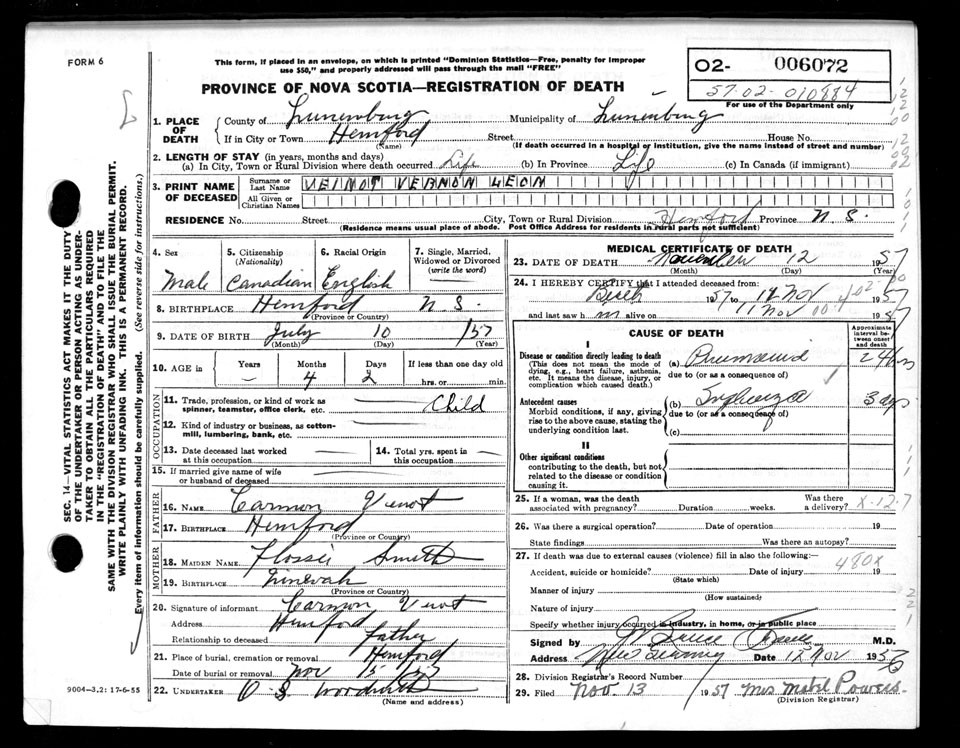 FORM 6
This form, if placed in an envelope, on which is printed "Dominion Statistics—Free, penalty for improper
use $50," and properly addressed will pass through the mail "FREE"
02- 006072
57-02-010884
For use of the Department only
PROVINCE OF NOVA SCOTIA—REGISTRATION OF DEATH
1. PLACE OF DEATH
County of Lunenburg Municipality of Lunenburg
If in City or Town Hemford Street House No.
(Name) (If death occurred in a hospital or institution, give name instead of street and number)
2. LENGTH OF STAY (in years, months and days)
(a) In City, Town or Rural Division where death occurred Life (b) In Province Life (c) In Canada (if immigrant)
3. PRINT NAME OF DECEASED
Surname or Last Name VEINOT VERNON LEON
All Given or Christian Names
RESIDENCE No. Street City, Town or Rural Division Hemford Province N.S.
(Residence means usual place of abode. Post Office Address for residents in rural parts not sufficient)
4. Sex Male
5. Citizenship (Nationality) Canadian
6. Racial Origin English
7. Single, Married, Widowed or Divorced (write the word)
8. BIRTHPLACE Hemford N.S.
(Province or Country)
9. DATE OF BIRTH July 10 1957
(Month) (Day) (Year)
10. AGE in Years — Months 4 Days 2 If less than one day old
hrs. or min.
OCCUPATION
11. Trade, profession, or kind of work as
spinner, teamster, office clerk, etc. Child
12. Kind of industry or business, as cotton-
mill, lumbering, bank, etc.
13. Date deceased last worked
at this occupation
14. Total yrs. spent in
this occupation
15. If married give name of wife
or husband of deceased
FATHER
16. NAME Carmon Veinot
17. BIRTHPLACE Hemford
(Province or Country)
MOTHER
18. MAIDEN NAME Flossie Smith
19. BIRTHPLACE
(Province or Country)
20. Signature of informant Carmon Veinot
Address Hemford
Relationship to deceased father
21. Place of burial, cremation or removal Hemford
Date of burial or removal Nov 15
22. UNDERTAKER
(Name and address)
MEDICAL CERTIFICATE OF DEATH
23. DATE OF DEATH November 12 1957
(Month) (Day) (Year)
24. I HEREBY CERTIFY that I attended deceased from:
Birth 1957 to 12 Nov 1957
and last saw h m alive on 11 Nov 1957
CAUSE OF DEATH
Approximate interval between onset and death
I
Disease or condition directly leading to death
(This does not mean the mode of dying, e.g., heart failure, asthenia, etc. It means the disease, injury, or complication which caused death.)
(a) Pneumonia 24 hrs
due to (or as a consequence of)
Antecedent causes
Morbid conditions, if any, giving rise to the above cause, stating the underlying condition last.
(b) Influenza 3 dys
due to (or as a consequence of)
(c)
II
Other significant conditions
contributing to the death, but not related to the disease or condition causing it.
25. If a woman, was the death
associated with pregnancy? Duration weeks. Was there a delivery? X-12-7
26. Was there a surgical operation? Date of operation 19
State findings Was there an autopsy?
27. If death was due to external causes (violence) fill in also the following:— 480X
Accident, suicide or homicide? Date of injury 19
(State which)
Manner of injury
(How sustained)
Nature of injury
Specify whether injury occurred in industry, in home, or in public place
Signed by M.D.
Address New Germany Date 12 Nov 1957
28. Division Registrar's Record Number
29. Filed Nov. 13 1957 Mrs Powers
(Division Registrar)
9004—3.2: 17-6-55
SEC. 14—VITAL STATISTICS ACT MAKES IT THE DUTY
OF THE UNDERTAKER OR PERSON ACTING AS UNDER-
TAKER TO OBTAIN ALL THE PARTICULARS REQUIRED
IN THE "REGISTRATION OF DEATH" AND TO FILE THE
SAME WITH THE DIVISION REGISTRAR WHO SHALL ISSUE THE BURIAL PERMIT.
WRITE PLAINLY WITH UNFADING INK. THIS IS A PERMANENT RECORD.
Every item of information should be carefully supplied. (See reverse side for instructions.)